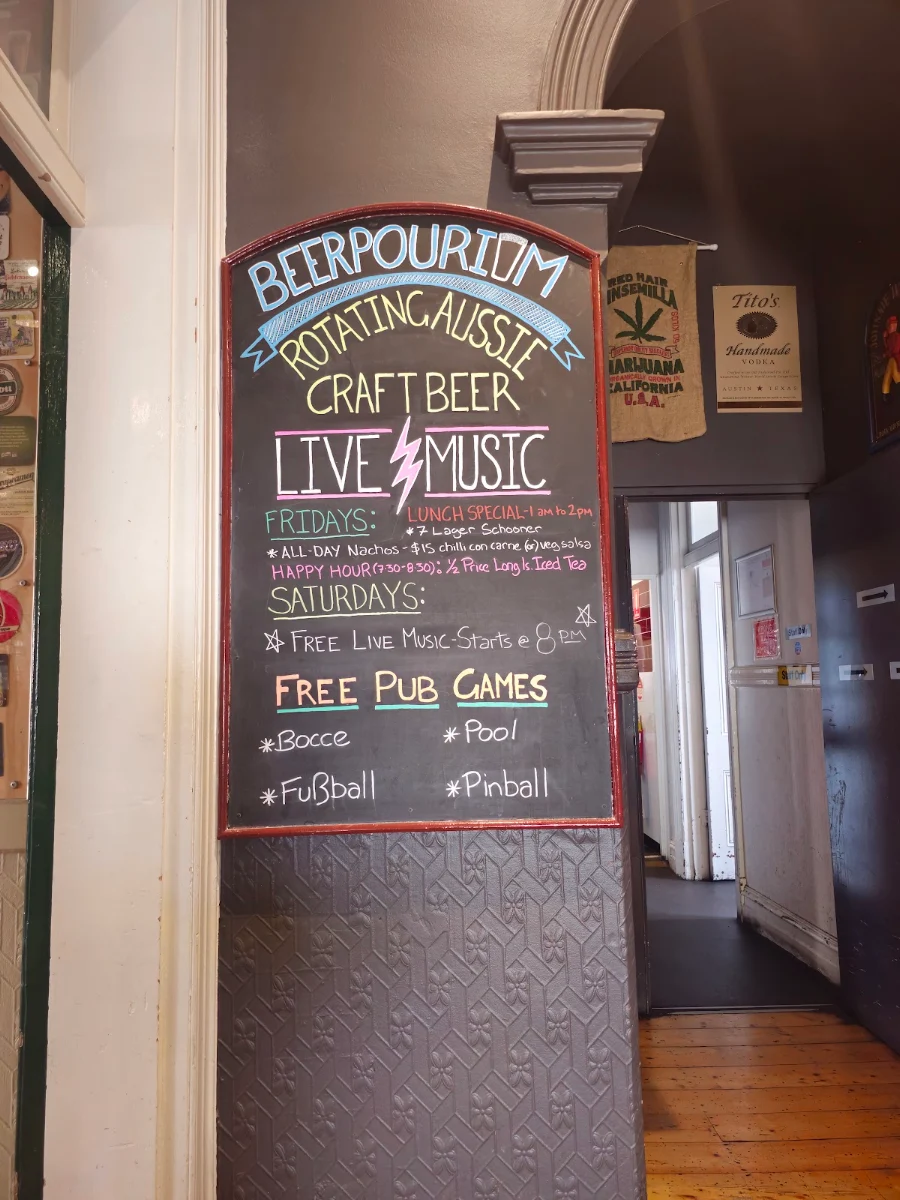 BEERPOURIUM
ROTATING AUSSIE
CRAFT BEER
LIVE MUSIC
FRIDAYS:
LUNCH SPECIAL-11am to 2pm
*7 Lager Schooner
* ALL-DAY Nachos - $15 chilli con carne (or) veg salsa
HAPPY HOUR (7:30-8:30): ½ Price Long Is Iced Tea
SATURDAYS:
FREE LIVE MUSIC-Starts @ 8PM
FREE PUB GAMES
*Bocce
*Pool
*Fußball
*Pinball
RED HAIR
INSEMILLA
MARIJUANA
ORGANICALLY GROWN IN
CALIFORNIA
U.S.A.
Tito's
Handmade
VODKA
AUSTIN ★ TEXAS